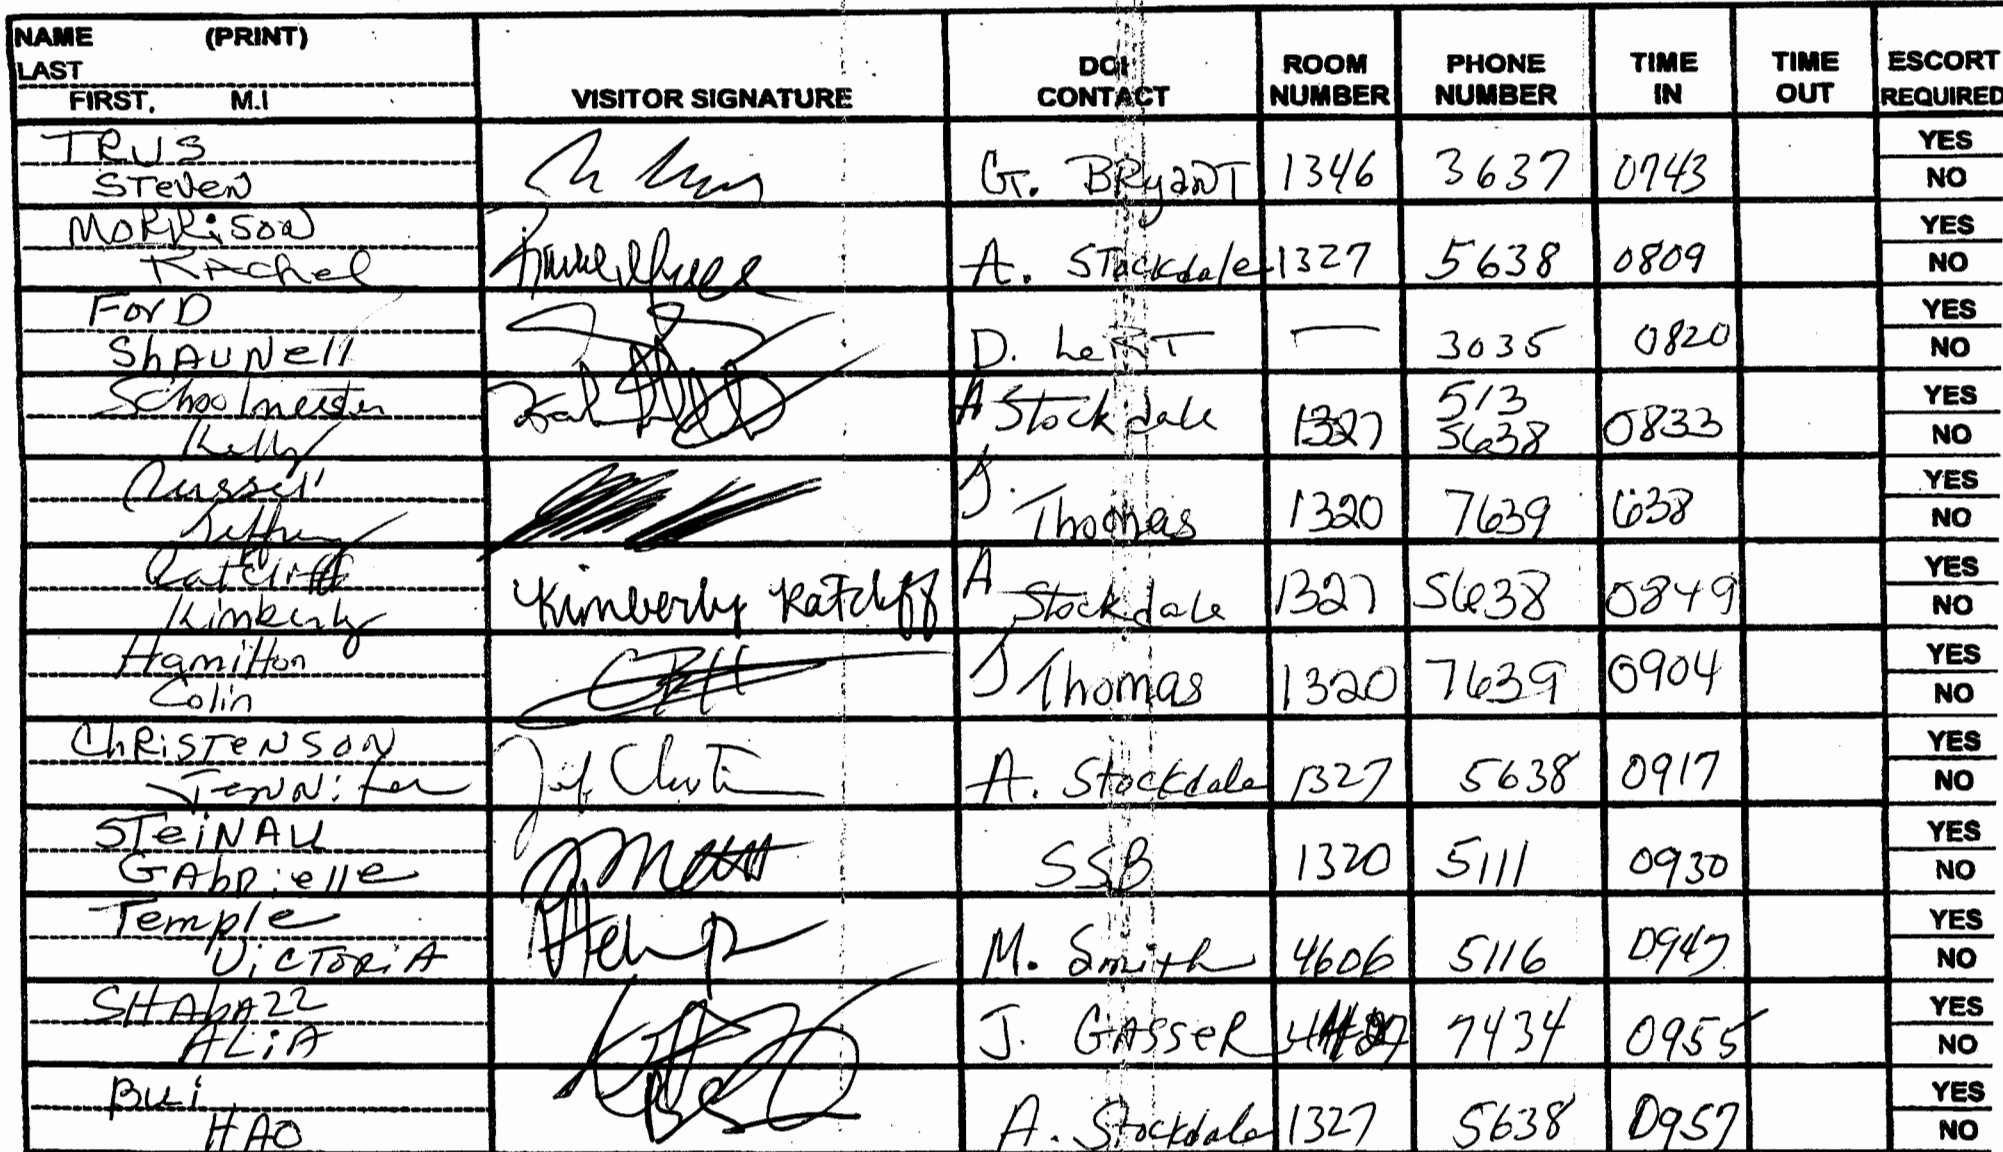 NAME (PRINT)
LAST
FIRST, M.I
VISITOR SIGNATURE
DOI CONTACT
ROOM NUMBER
PHONE NUMBER
TIME IN
TIME OUT
ESCORT REQUIRED
TRUS
STeVeN
G. BRyanT 1346 3637 0743 YES NO
MoRRiSoN
RAchel
A. STockdale 1327 5638 0809 YES NO
ForD
ShAuNell
D. 3035 0820 YES NO
Schoolmeester
Kelly
A Stockdale 1327 513 5638 0833 YES NO
Russell
Jeffrey
J. Thomas 1320 7639 YES NO
Ratcliff
Kimberly
Kimberly Ratcliff A Stockdale 1327 5638 0849 YES NO
Hamilton
Colin
J Thomas 1320 7639 0904 YES NO
ChRiSTeNSoN
JeNNifer
A. Stockdale 1327 5638 0917 YES NO
STeiNAU
GAbRielle
SSB 1320 5111 0930 YES NO
Temple
VicToRiA
M. Smith 4606 5116 0947 YES NO
SHAbAzz
ALiA
J. GASSeR 7434 0955 YES NO
Bui
HAO
A. Stockdale 1327 5638 0957 YES NO